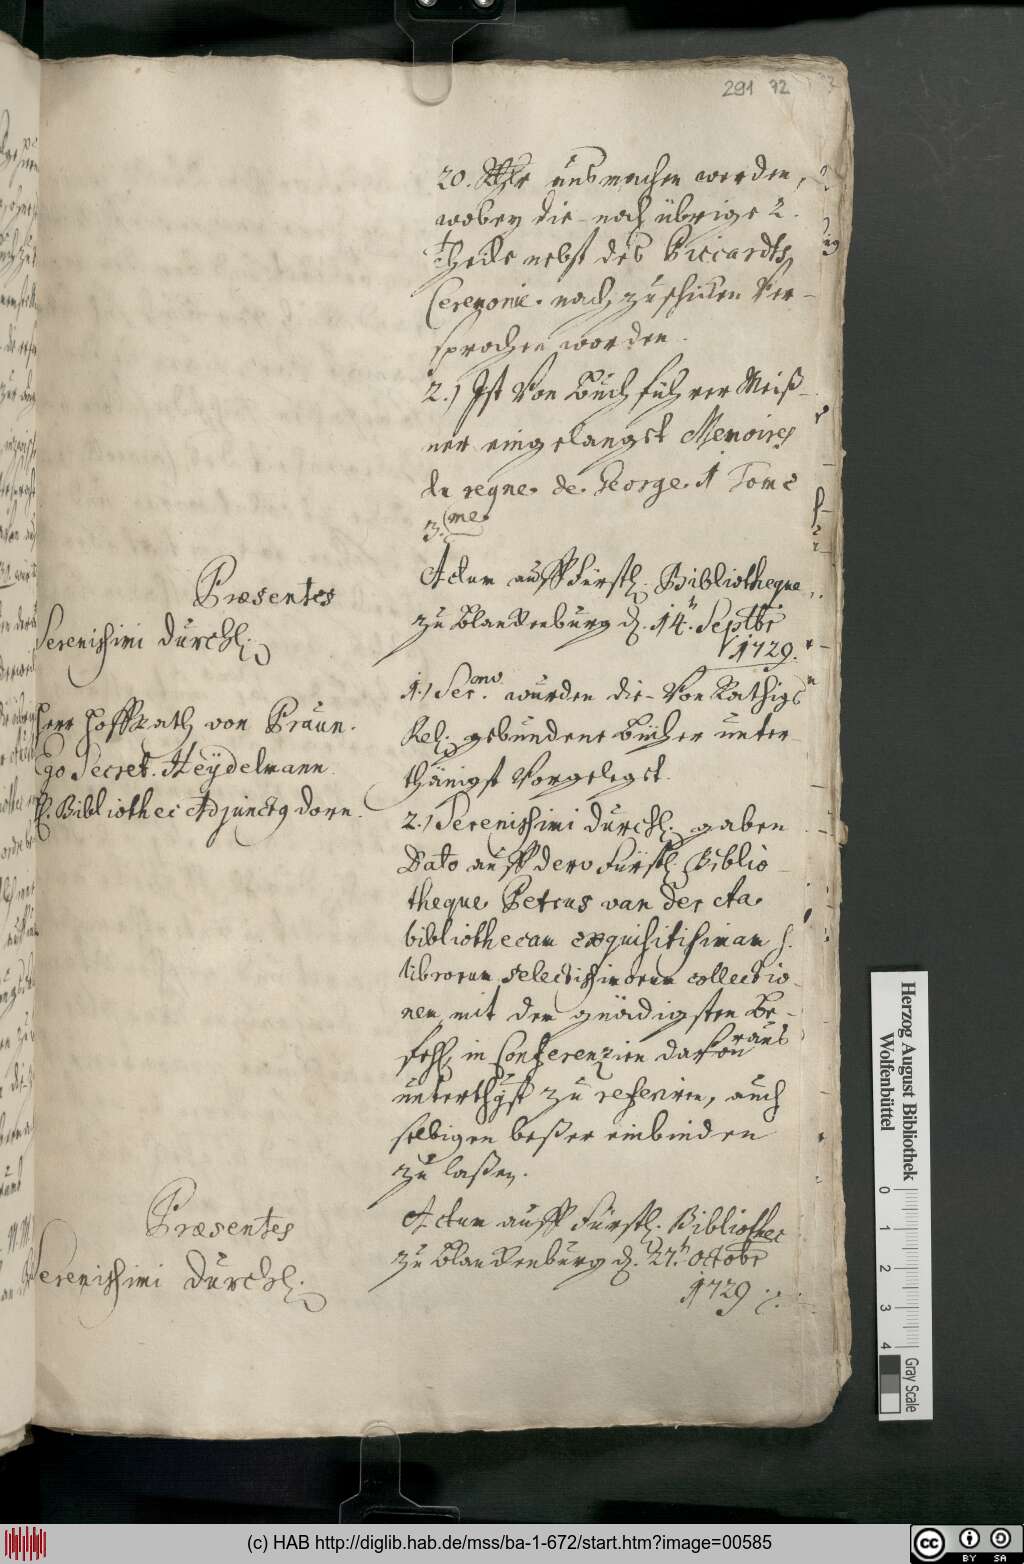 291 72
20. Rthlr ausmachen werden,
wobey die noch übrige 2.
Theile nebst des Piccardts
Ceremonie. nach zu schicken Ver-
sprochen worden.
2.) Ist Von Buch führer Meiß-
ner eingelangt Memoires
du regne. de. George. 1 Tome
3.me.
Actum auff Fürstl. Bibliotheque
zu Blanckenburg d. 14.t Septbr
1729.
Præsentes
Serenissimi Durchl.
Herr Hoffrath von Praun.
Ego Secret. Heydelmann
H. Bibliothec Adjunctg Dorn.
1.) Ser.mo wurden die Von Rathigs
Rel. gebundene Bücher unter-
thänigst Vorgelegt.
2.) Serenissimi Durchl. gaben
Dato auff dero Fürstl. Biblio-
theque Petrus van der Aa.
bibliothecam exquisitisimam s.
librorum selectissimorum collectio-
nem mit dem gnädigsten Be-
fehl, in Conferenzien davon
raus
unterthgst zu referiren, auch
selbigen beßer einbinden
zu laßen.
Actum auff Fürstl. Bibliothec
zu Blanckenburg d. 27.t Octobr
1729.
Præsentes
Serenissimi Durchl.
Herzog August Bibliothek
Wolfenbüttel
0 1 2 3 4
Gray Scale
(c) HAB http://diglib.hab.de/mss/ba-1-672/start.htm?image=00585
cc BY SA